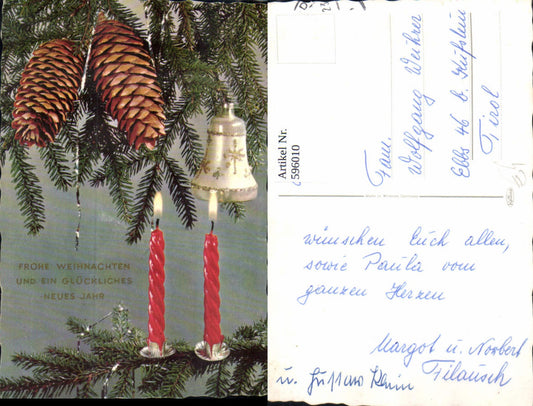 FROHE WEIHNACHTEN
UND EIN GLÜCKLICHES
NEUES JAHR
Artikel Nr.
596010
Fam.
Wolfgang
Ebbs 46 b. Kufstein
Tirol
wünschen Euch allen,
sowie Paula vom
ganzen Herzen
Margot u. Norbert
Filausch
u. Gustav